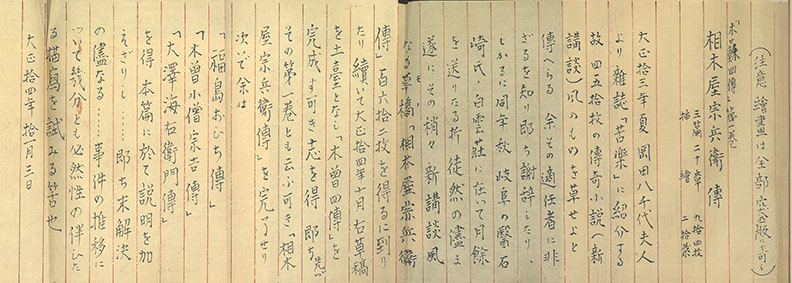 (注意 繪畫は全部 完成版に可る)
「木曽四傳」第一巻
相木屋宗兵衛傳
三篇 二十章 九拾四枚
挿繪 二拾葉
大正拾三年夏 岡田八千代夫人
より雜誌「苦樂」に紹介する
故 四五拾枚の傳奇小説(新
講談)風のものを草せよと
傳へらる 余その適任者に非
ざるを知り即ち謝辞したり、
しかるに同年秋 岐阜の醫石
崎氏、白雲莊に在いて月餘
を送りたる折 徒然の儘ま
遂にその稍々新講談風
なる草稿「相木屋宗兵衛
傳」百六拾二枚を得るに到り
たり 續いて大正拾四年十月 右草稿
を土臺となし「木曽四傳」を
完成す可き志を得 即ち先づ
その第一巻とも云ふ可き「相木
屋宗兵衛傳」を完了せり
次で余は
「福島おひち傳」
「木曽小僧宗吉傳」
「大澤海右衛門傳」
を得 本篇に於て説明を加
へざりし…… 即ち未解決
の儘なる……事件の推移に
ついて幾分とも必然性の伴ひた
る描寫を試みる筈也
大正拾四年拾一月三日